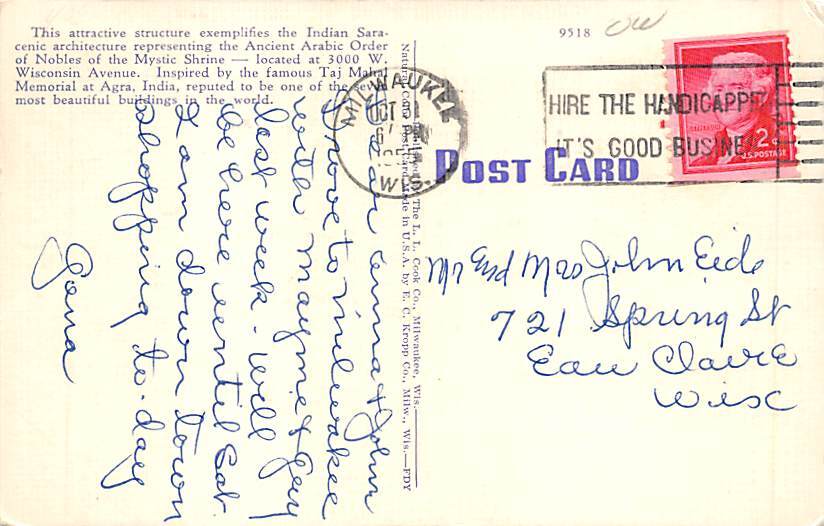 This attractive structure exemplifies the Indian Sara-
cenic architecture representing the Ancient Arabic Order
of Nobles of the Mystic Shrine — located at 3000 W.
Wisconsin Avenue. Inspired by the famous Taj Mahal
Memorial at Agra, India, reputed to be one of the seven
most beautiful buildings in the world.
9518
MILWAUKEE
OCT
WIS.
HIRE THE HANDICAPPE
IT'S GOOD BUSINE
2¢
U.S. POSTAGE
POST CARD
Dear Anna & John
Drove to Milwakee
with Mayme & Guy
last week - Will
be here until Sat.
I am down town
shopping to-day
Gena
Natural Color Post Card Made in U.S.A. by E. C. Kropp Co., Milw., Wis.—FDY
The L. L. Cook Co., Milwaukee, Wis.
Mr End Mrs John Eide
721 Spring St
Eau Claire
Wisc